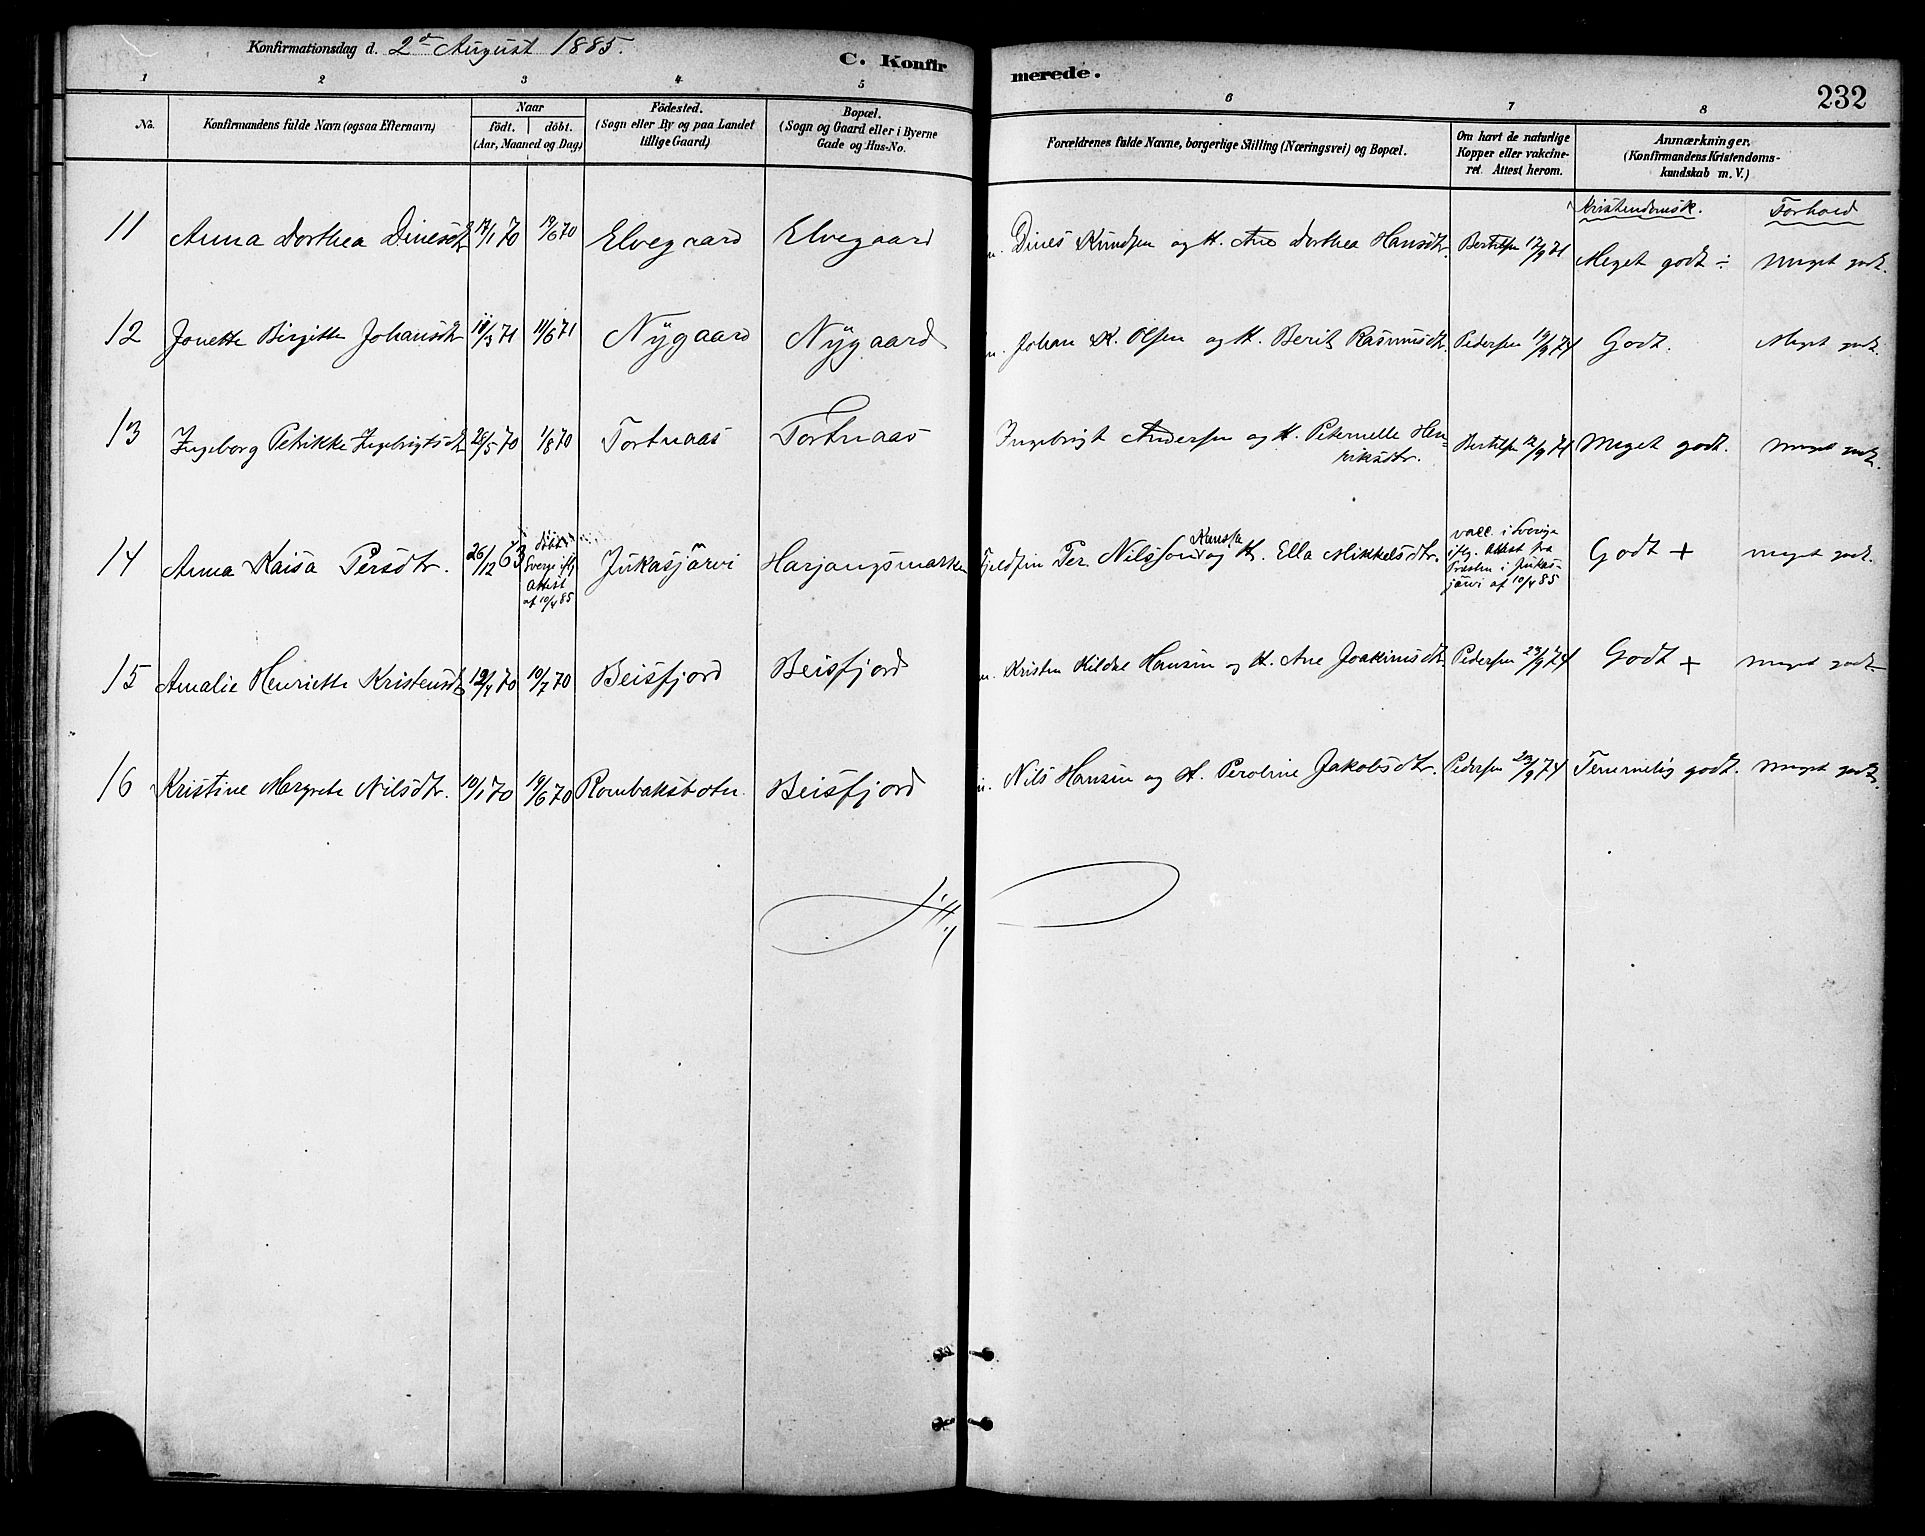 Konfirmationsdag d. 2den August 1885.
C. Konfirmerede.
232
1 2 3 4 5 6 7 8
No.
Konfirmandens fulde Navn (ogsaa Efternavn)
Naar
födt. döbt.
(Aar, Maaned og Dag)
Födested.
(Sogn eller By og paa Landet
tillige Gaard)
Bopæl.
(Sogn og Gaard eller i Byerne
Gade og Hus-No.
Forældrenes fulde Navne, borgerlige Stilling (Næringsvei) og Bopæl.
Om havt de naturlige
Kopper eller vakcine-
ret. Attest herom.
Anmærkninger.
(Konfirmandens Kristendoms-
kundskab m. V.)
Kristendomsk. Forhold
11 Anna Dorthea Dinesdtr 17/1 70 19/6 70 Elvegaard Elvegaard Dines Knudsen og H. Ane Dorthea Hansdtr. Bertelsen 12/9 71 Meget godt ÷ Meget godt.
12 Jonette Birgitte Johansdtr 11/3 71 11/6 71 Nygaard Nygaard Johan K. Olsen og H. Berit Rasmusdtr. Pedersen 19/9 74 Godt. Meget godt.
13 Ingeborg Petrikke Ingebrigtsdtr 28/5 70 1/8 70 Tortnaas Tortnaas Ingebrigt Andersen og H. Peternelle Hen-
riksdtr. Bertelsen 12/9 71 Meget godt. Meget godt.
14 Anna Kaisa Persdtr. 26/12 63 döbt i
Sverge iflg.
Attest
af 10/4 85 Jukasjärvi Harjangsmarken Fjeldfin Per Nilsson Kunsta og H. Ella Mikkelsdtr. vacc. i Sverige
iflg. Attest fra
Præsten i Jukas-
järvi af 10/4 85 Godt + Meget godt.
15 Amalie Henriette Kristensdtr 12/4 70 10/7 70 Beisfjord Beisfjord Kristen Kildal Hansen og H. Ane Joakimsdtr. Pedersen 23/9 74 Godt + Meget godt
16 Kristine Margrete Nilsdtr. 10/1 70 19/6 70 Rombaksbotn Beisfjord Nils Hansen og H. Peroline Jakobsdtr. Pedersen 23/9 74 Temmelig godt. Meget godt.